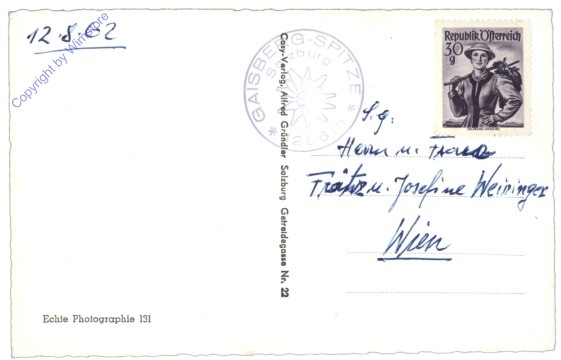 12.8.62
Copyright by Wimstore
GAISBERG-SPITZE
Salzburg
1286 m
Republik Österreich
30
g
Cosy-Verlag, Alfred Gründler Salzburg Getreidegasse Nr. 22
S.g.
Herrn u. Frau
Fritz u. Josefine Weininger
Wien
Echte Photographie 131